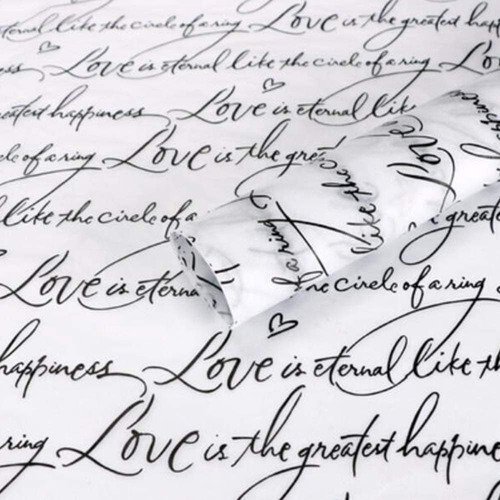 eternal like the circle of a ring Love is the greatest happ
ness Love is eternal like the circle of a ring Lo
eatest happiness Love is eternal lik
cle of a ring Love is the gre
like the circle of a
Love is eterna
a ring
like the
Love
happine
great
he circle of a ring
happiness Love is eternal like th
ring Love is the greatest happine